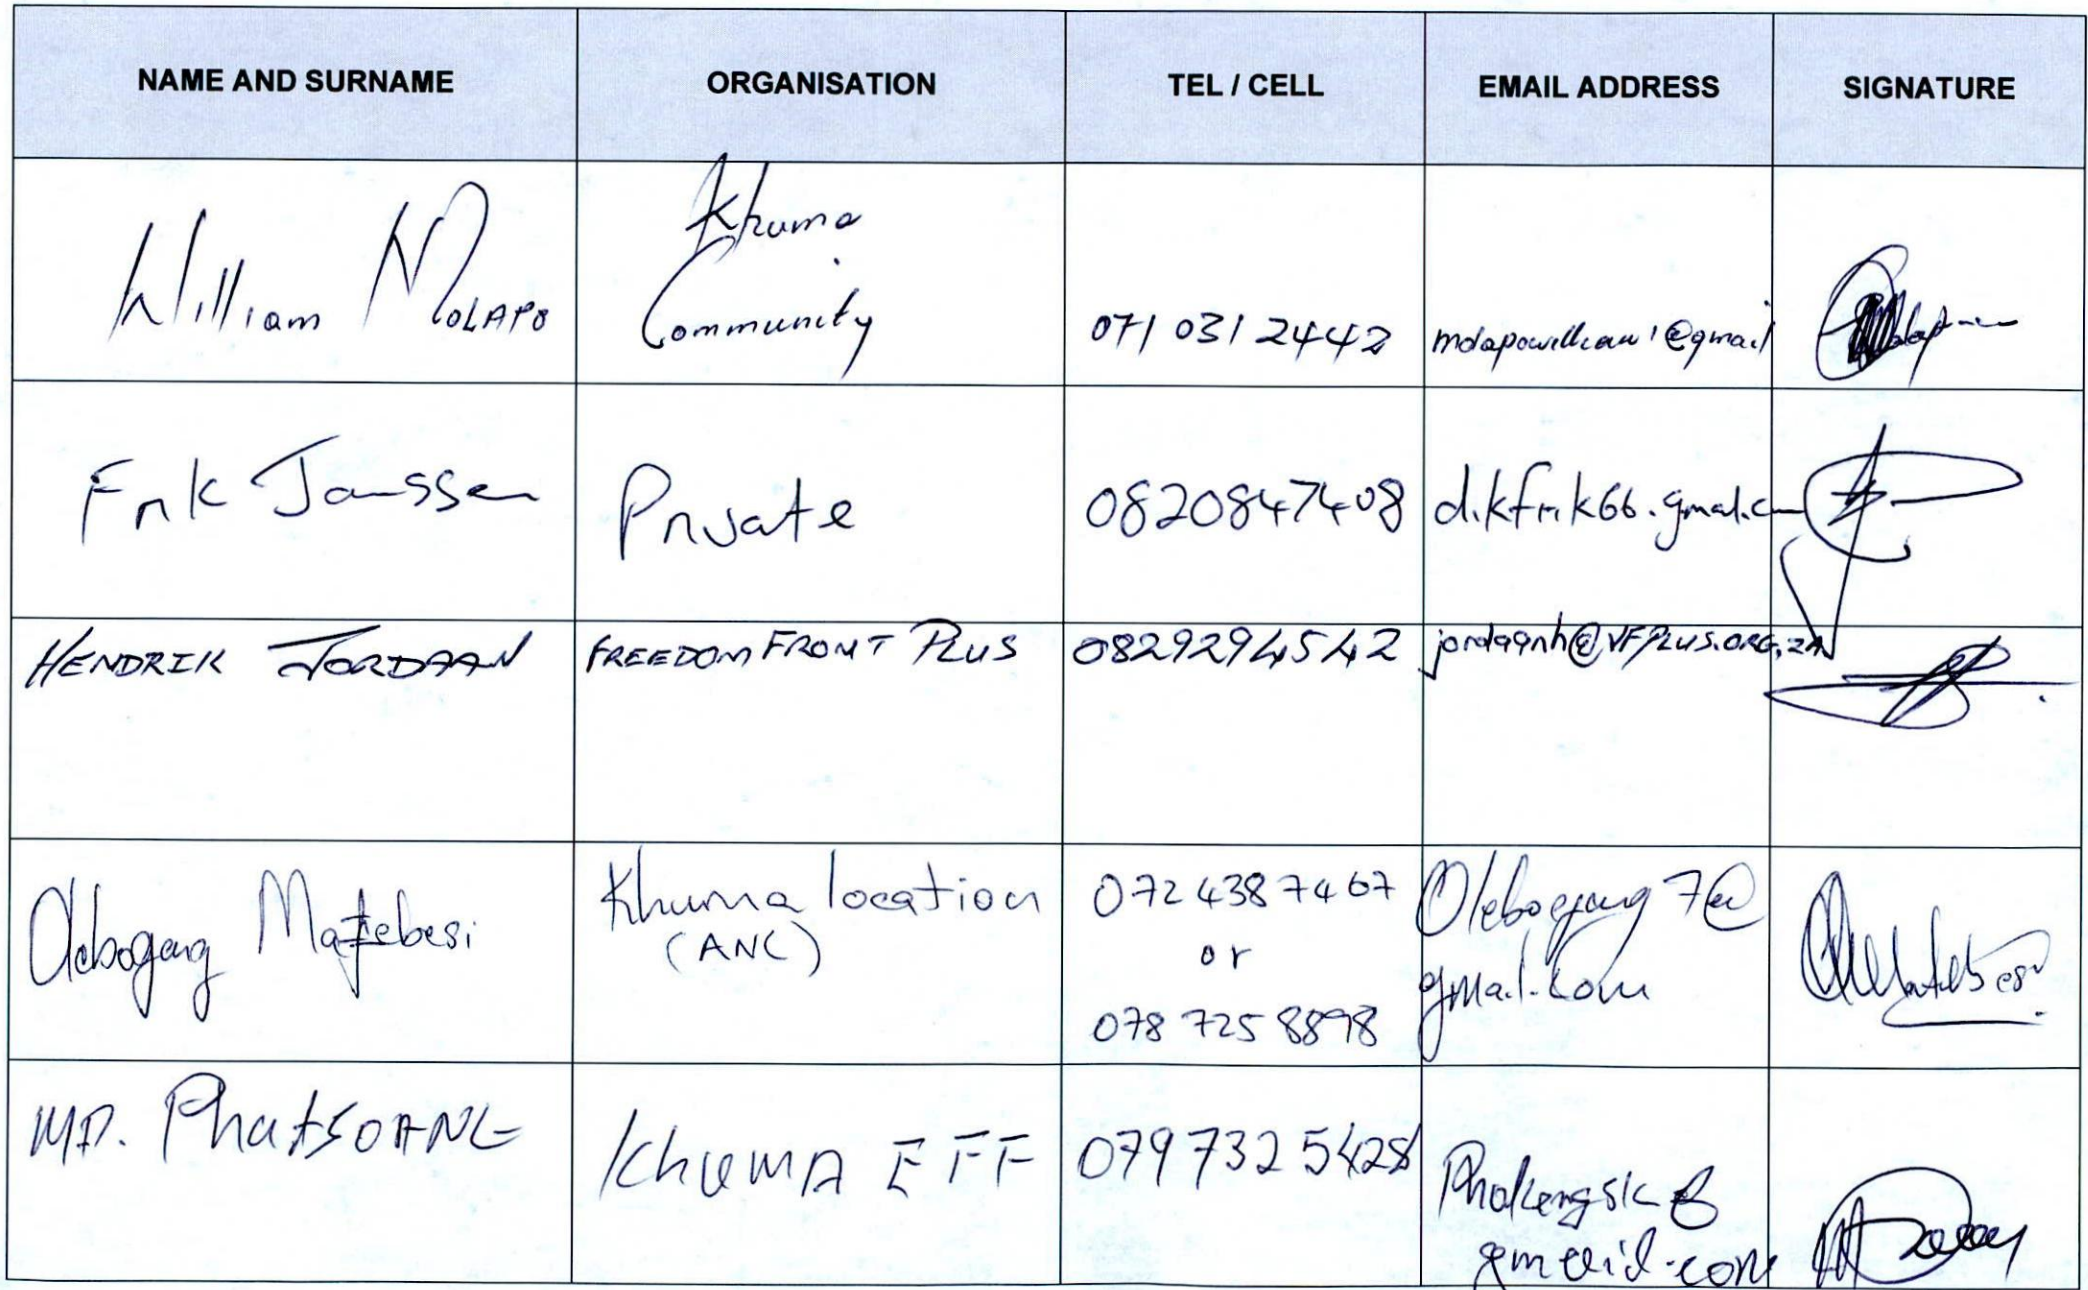 NAME AND SURNAME ORGANISATION TEL / CELL EMAIL ADDRESS SIGNATURE
William MOLAPO Khuma Community 071 031 2442 molapowilliam1@gmail
Frik Janssen Private 0820847408 dikfrik66.gmail.com
HENDRIK JORDAAN FREEDOM FRONT PLUS 0829294542 jordaanh@VFPLUS.ORG.ZA
Olebogang Matebesi Khuma location (ANC) 072 438 7467 or 078 725 8898 Olebogang7@gmail.com
MP. PhatsOANE KhumA EFF 079732 5428 gmail.com